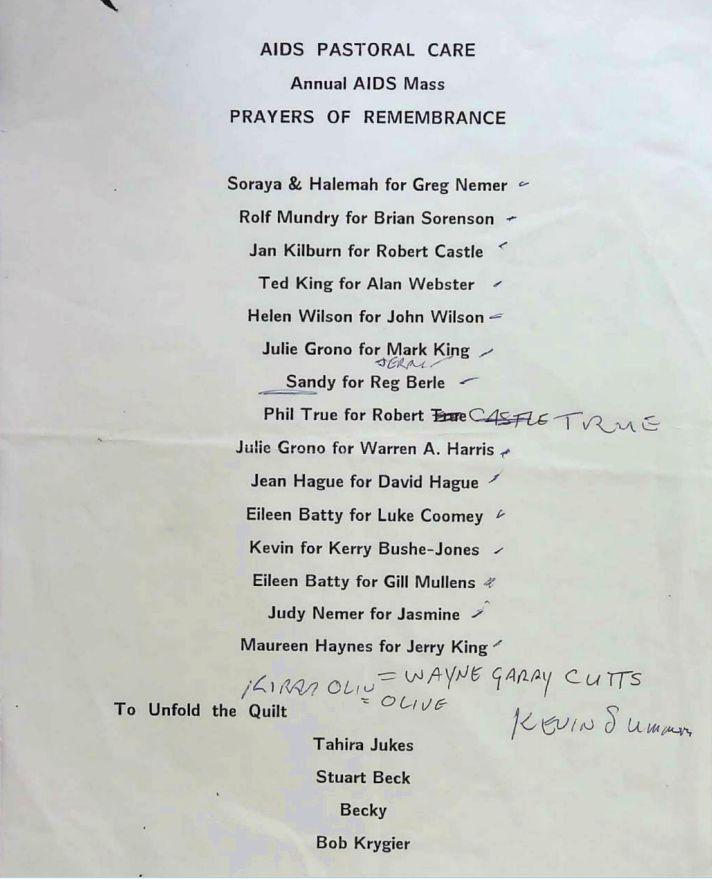 AIDS PASTORAL CARE
Annual AIDS Mass
PRAYERS OF REMEMBRANCE
Soraya & Halemah for Greg Nemer
Rolf Mundry for Brian Sorenson
Jan Kilburn for Robert Castle
Ted King for Alan Webster
Helen Wilson for John Wilson
Julie Grono for Mark King
Sandy for Reg Berle
Phil True for Robert True CASTLE TRUE
Julie Grono for Warren A. Harris
Jean Hague for David Hague
Eileen Batty for Luke Coomey
Kevin for Kerry Bushe-Jones
Eileen Batty for Gill Mullens
Judy Nemer for Jasmine
Maureen Haynes for Jerry King
= WAYNE GARRY CUTTS
= OLIVE
To Unfold the Quilt
KEVIN
Tahira Jukes
Stuart Beck
Becky
Bob Krygier